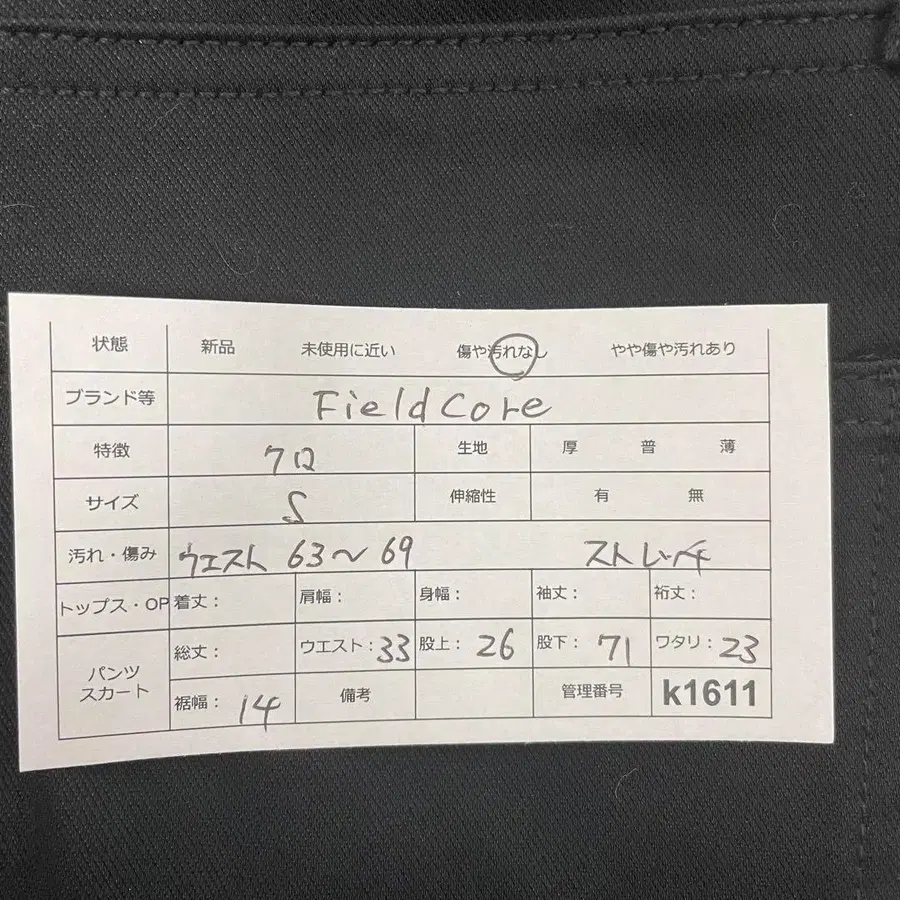 状態 新品 未使用に近い 傷や汚れなし やや傷や汚れあり
ブランド等 Field Core
特徴 クロ 生地 厚 普 薄
サイズ S 伸縮性 有 無
汚れ・傷み ウエスト 63〜69 ストレッチ
トップス・OP 着丈: 肩幅: 身幅: 袖丈: 裄丈:
パンツ スカート 総丈: ウエスト:33 股上:26 股下:71 ワタリ:23
裾幅:14 備考 管理番号 k1611